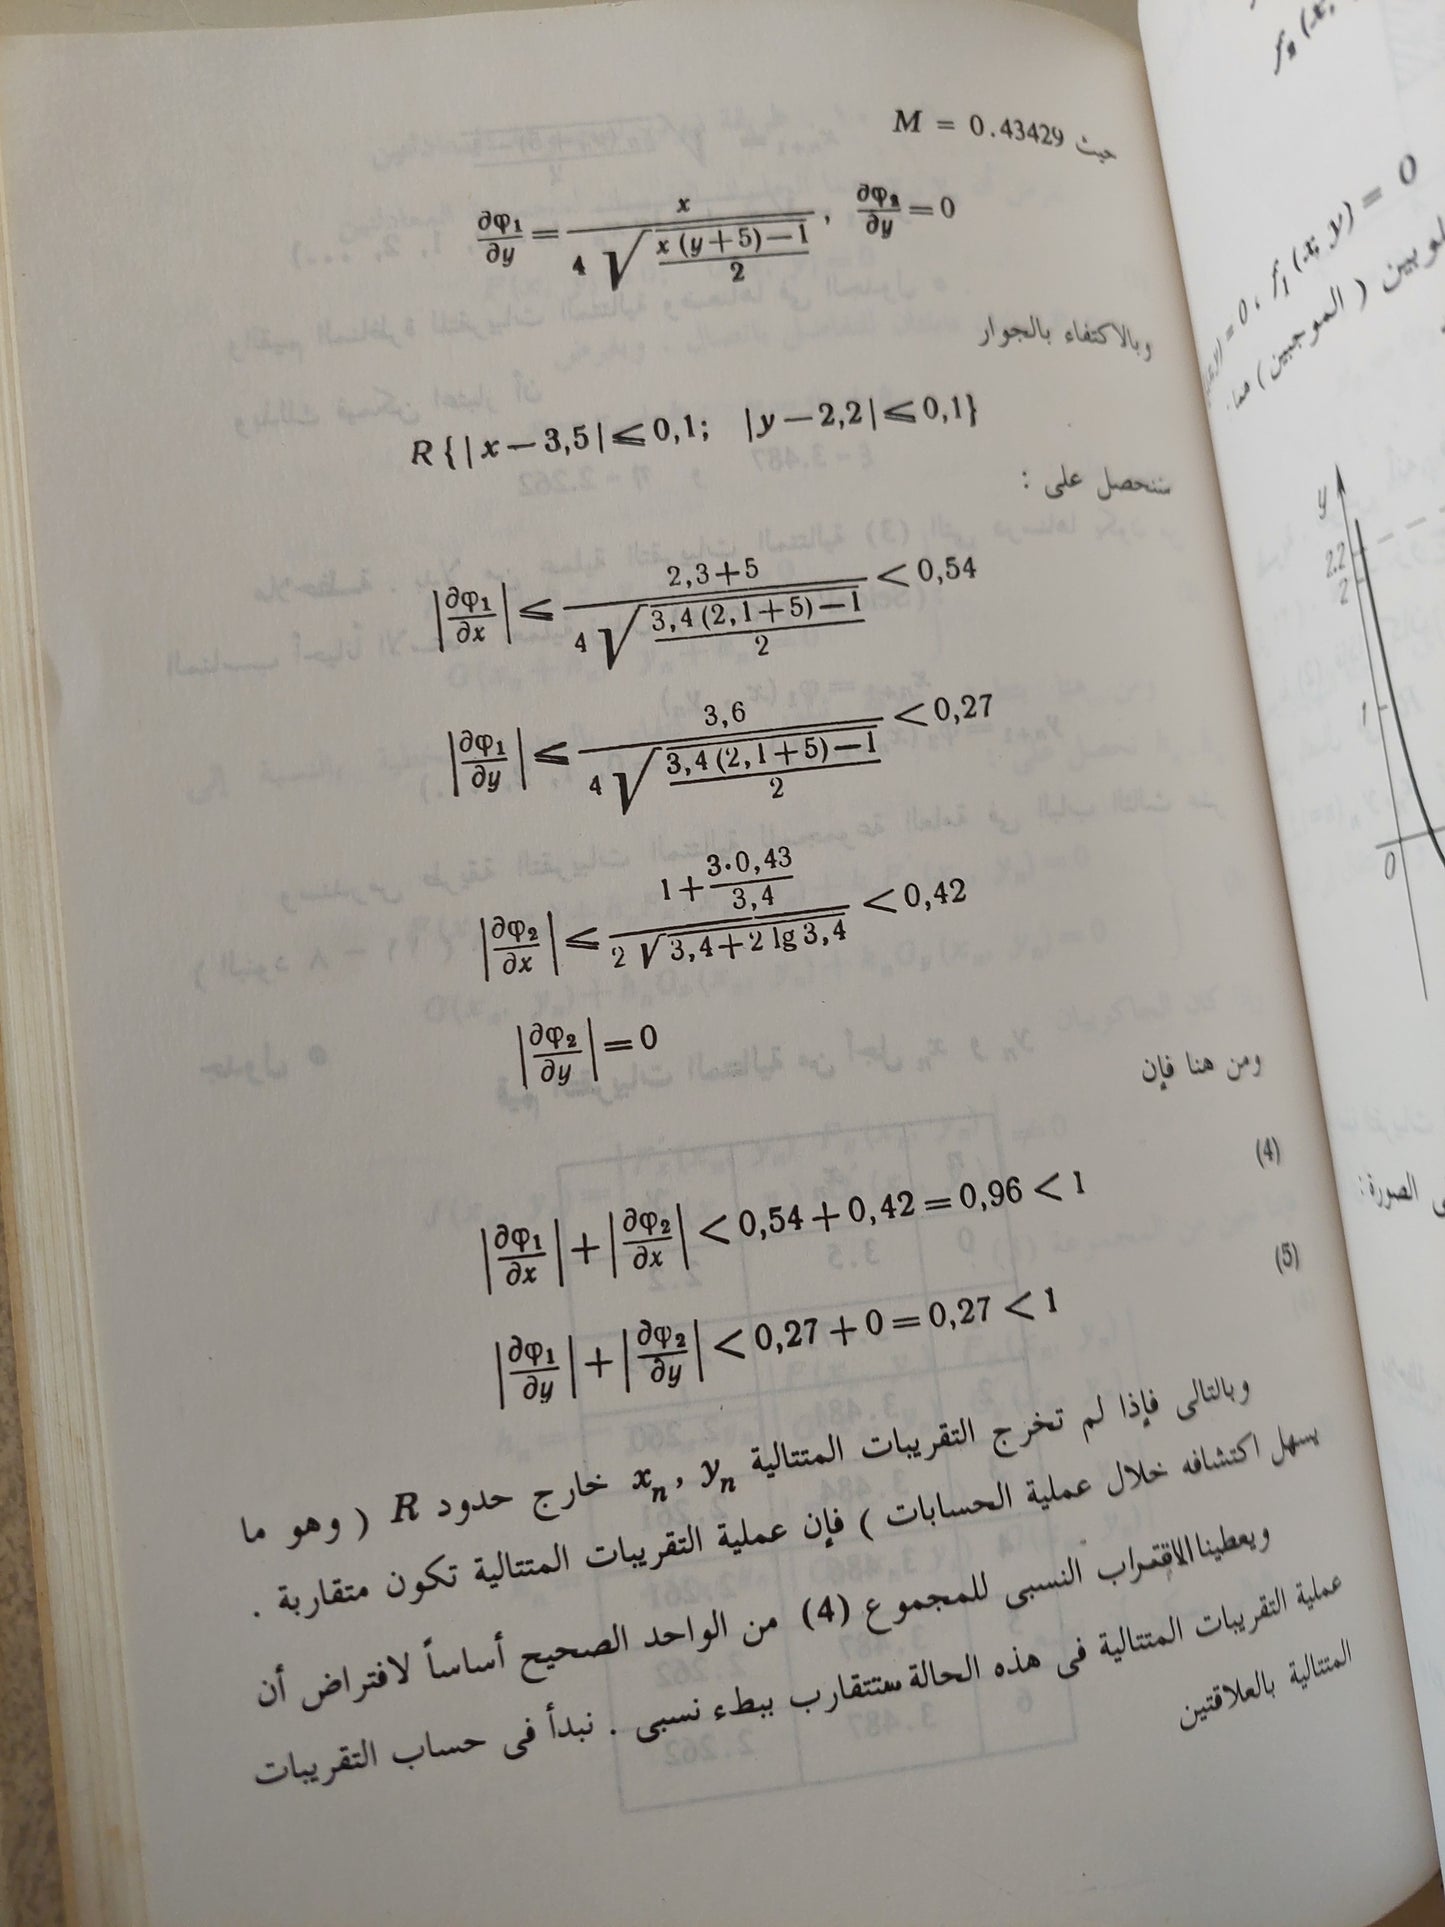 حيث M = 0.43429
∂φ₁/∂y = x / (4 √((x (y+5)−1)/2)) , ∂φ₂/∂y = 0
وبالاكتفاء بالجوار
R { | x − 3,5 | ⩽ 0,1; | y − 2,2 | ⩽ 0,1 }
سنحصل على :
|∂φ₁/∂x| ⩽ (2,3+5) / (4 √((3,4 (2,1+5)−1)/2)) < 0,54
|∂φ₁/∂y| ⩽ 3,6 / (4 √((3,4 (2,1+5)−1)/2)) < 0,27
|∂φ₂/∂x| ⩽ (1 + (3·0,43)/3,4) / (2 √(3,4+2 lg 3,4)) < 0,42
|∂φ₂/∂y| = 0
ومن هنا فإن
|∂φ₁/∂x| + |∂φ₂/∂x| < 0,54 + 0,42 = 0,96 < 1 (4)
|∂φ₁/∂y| + |∂φ₂/∂y| < 0,27 + 0 = 0,27 < 1 (5)
وبالتالى فإذا لم تخرج التقريبات المتتالية xₙ, yₙ خارج حدود R ( وهو ما
يسهل اكتشافه خلال عملية الحسابات ) فإن عملية التقريبات المتتالية تكون متقاربة .
ويعطينا الاقتراب النسبى للمجموع (4) من الواحد الصحيح أساساً لافتراض أن
عملية التقريبات المتتالية فى هذه الحالة ستتقارب ببطء نسبى . نبدأ فى حساب التقريبات
المتتالية بالعلاقتين
f₁ (x, y) = 0
( الموجبين ) هما:
y
2.2
2
1
0
الصورة: